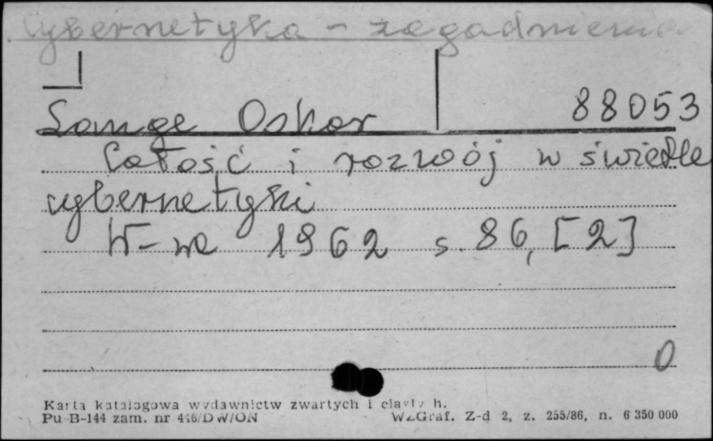 Cybernetyka - zagadnienia
Lange Oskar 88053
Całość i rozwój w świetle
cybernetyki
W-wa 1962 s. 86, [2]
0
Karta katalogowa wydawnictw zwartych i ciągłych.
Pu-B-144 zam. nr 446/DW/ON WZGraf. Z-d 2, z. 255/86, n. 6 350 000